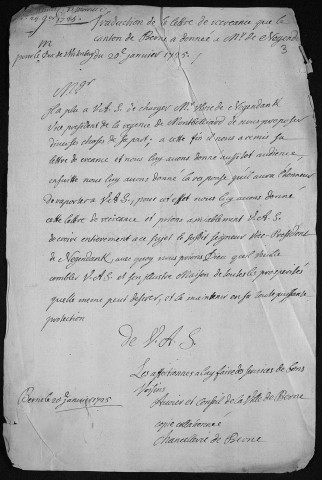 Traduction de la lettre de recreance que le
canton de Berne a donnée a Mr. de Negend
pour le Duc de Wirtemberg du 20e janvier 1705
3
Mgr
Il a plu a V.A.S. de charger Mr. de Negendank
Vice president de la regence de Montbeliard de nous proposer
diverses choses de sa part; a cette fin il nous a remis sa
lettre de creance et nous luy avons donné aussitot audience,
ensuitte nous luy avons donné la reponse quil aura l'honneur
de raporter a V.A.S., pour cet effet nous luy avons donné
cette lettre de recreance et prions amicablement V.A.S.
de croire entierement a ce sujet le susdit seigneur Vice-President
de Negendank, avec quoy nous prions Dieu quil veuille
combler V.A.S. et son illustre Maison de toutes les prosperités
quelle mesme peut desirer, et la maintenir en sa toute puissante
protection
De V.A.S.
Les affectionnes a luy faire des services de bons
Voisins
Berne le 20 janvier 1705
Advoier et Conseil de la Ville de Berne
copie collationnée
Chancelerie de Berne